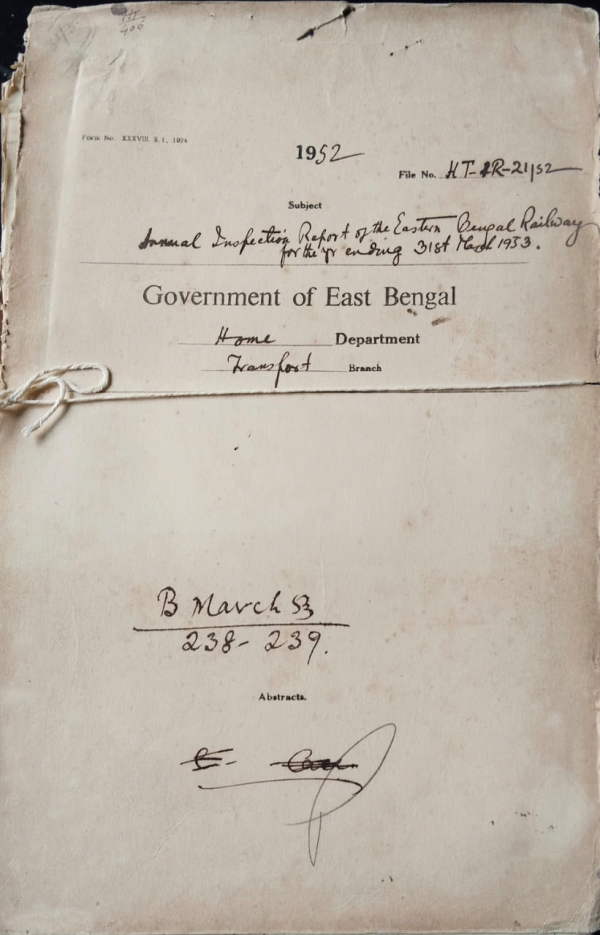 Form No. XXXVIII, S. I., 1924
1952
File No. HT-IR-21/52
Subject
Annual Inspection Report of the Eastern Bengal Railway
for the yr ending 31st March 1953.
Government of East Bengal
Home Department
Transport Branch
B March 53
238-239.
Abstracts.